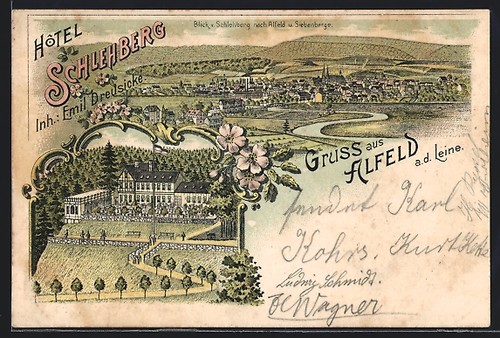 Blick v. Schlehberg nach Alfeld u. Siebenberge.
HÔTEL
SCHLEHBERG
Inh: Emil Dreusicke
GRUSS aus
ALFELD
a.d. Leine.
sendet Karl
Kohrs. Kurt
Ludwig Schmidt.
Wagner